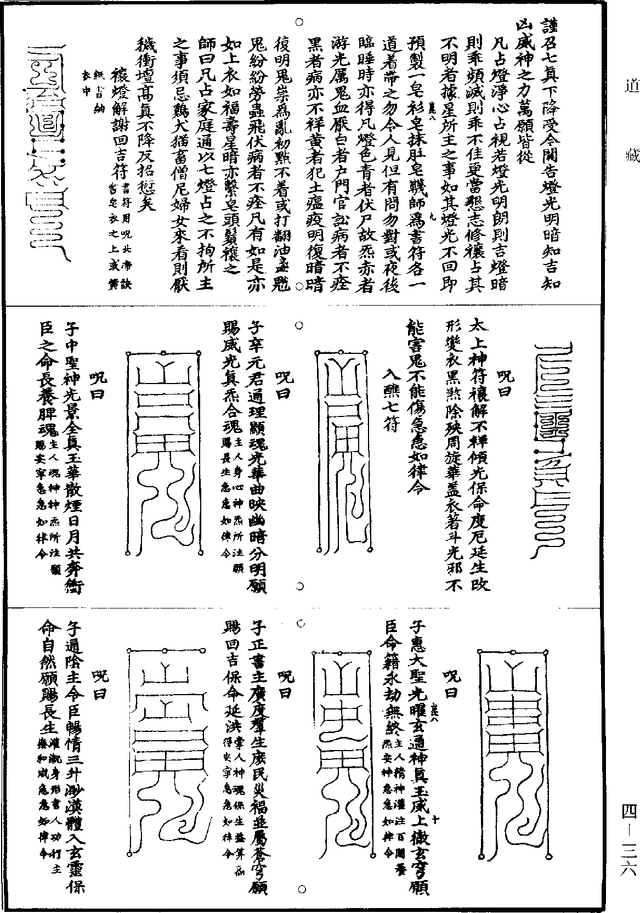 道藏
謹召七真下降受今關告燈光明暗知吉知
凶威神之力萬願皆從
凡占燈淨心占視若燈光明朗則吉燈暗
則乖頻滅則乖不佳更當懇志修禳占其
不明者據星所主之事如其燈光不回即
預製一皂衫皂抹肚皂韈師為書符各一
道着帶之勿令人見但有問勿對或夜後
臨睡時亦得凡燈色青者伏尸故炁赤者
游光厲鬼血厭白者戶門官訟病者不痊
黑者病亦不祥黃者犯土瘟疫明復暗暗
復明鬼祟為亂初點不着或打翻油盞虺
鬼紛紛勞蟲飛伏病者不痊凡有如是亦
如上衣如福壽星暗亦繫皂頭鬚禳之
師曰凡占家庭通以七燈占之不拘所主
之事須忌鷄犬猫畜僧尼婦女來看則厭
穢衝壇高真不降反招愆矣
禳燈解謝回吉符
紙書納
衣中
呪曰
太上神符禳解不祥傾光保命度厄延生改
形變衣黑煞除殃周旋華蓋衣著斗光邪不
能害鬼不能傷急急如律令
入醮七符
呪曰
子卒元君通理顯魂光華曲映幽暗分明願
賜威光真炁合魂主人身心神炁所注願賜長生急急如律令
呪曰
子中聖神光景全真玉華散煙日月共奔衝
臣之命長養脾魂主人魂神炁所注願賜安寧急急如律令
呪曰
子惠大聖光曜玄通神真玉威上徹玄穹願
臣命籍永劫無終
呪曰
子正書主廣度羣生庶民災福並屬蒼穹願
賜回吉保命延洪
呪曰
子通陰主令臣暢情三升渺漠體入玄靈保
命自然願賜長生
四—三六